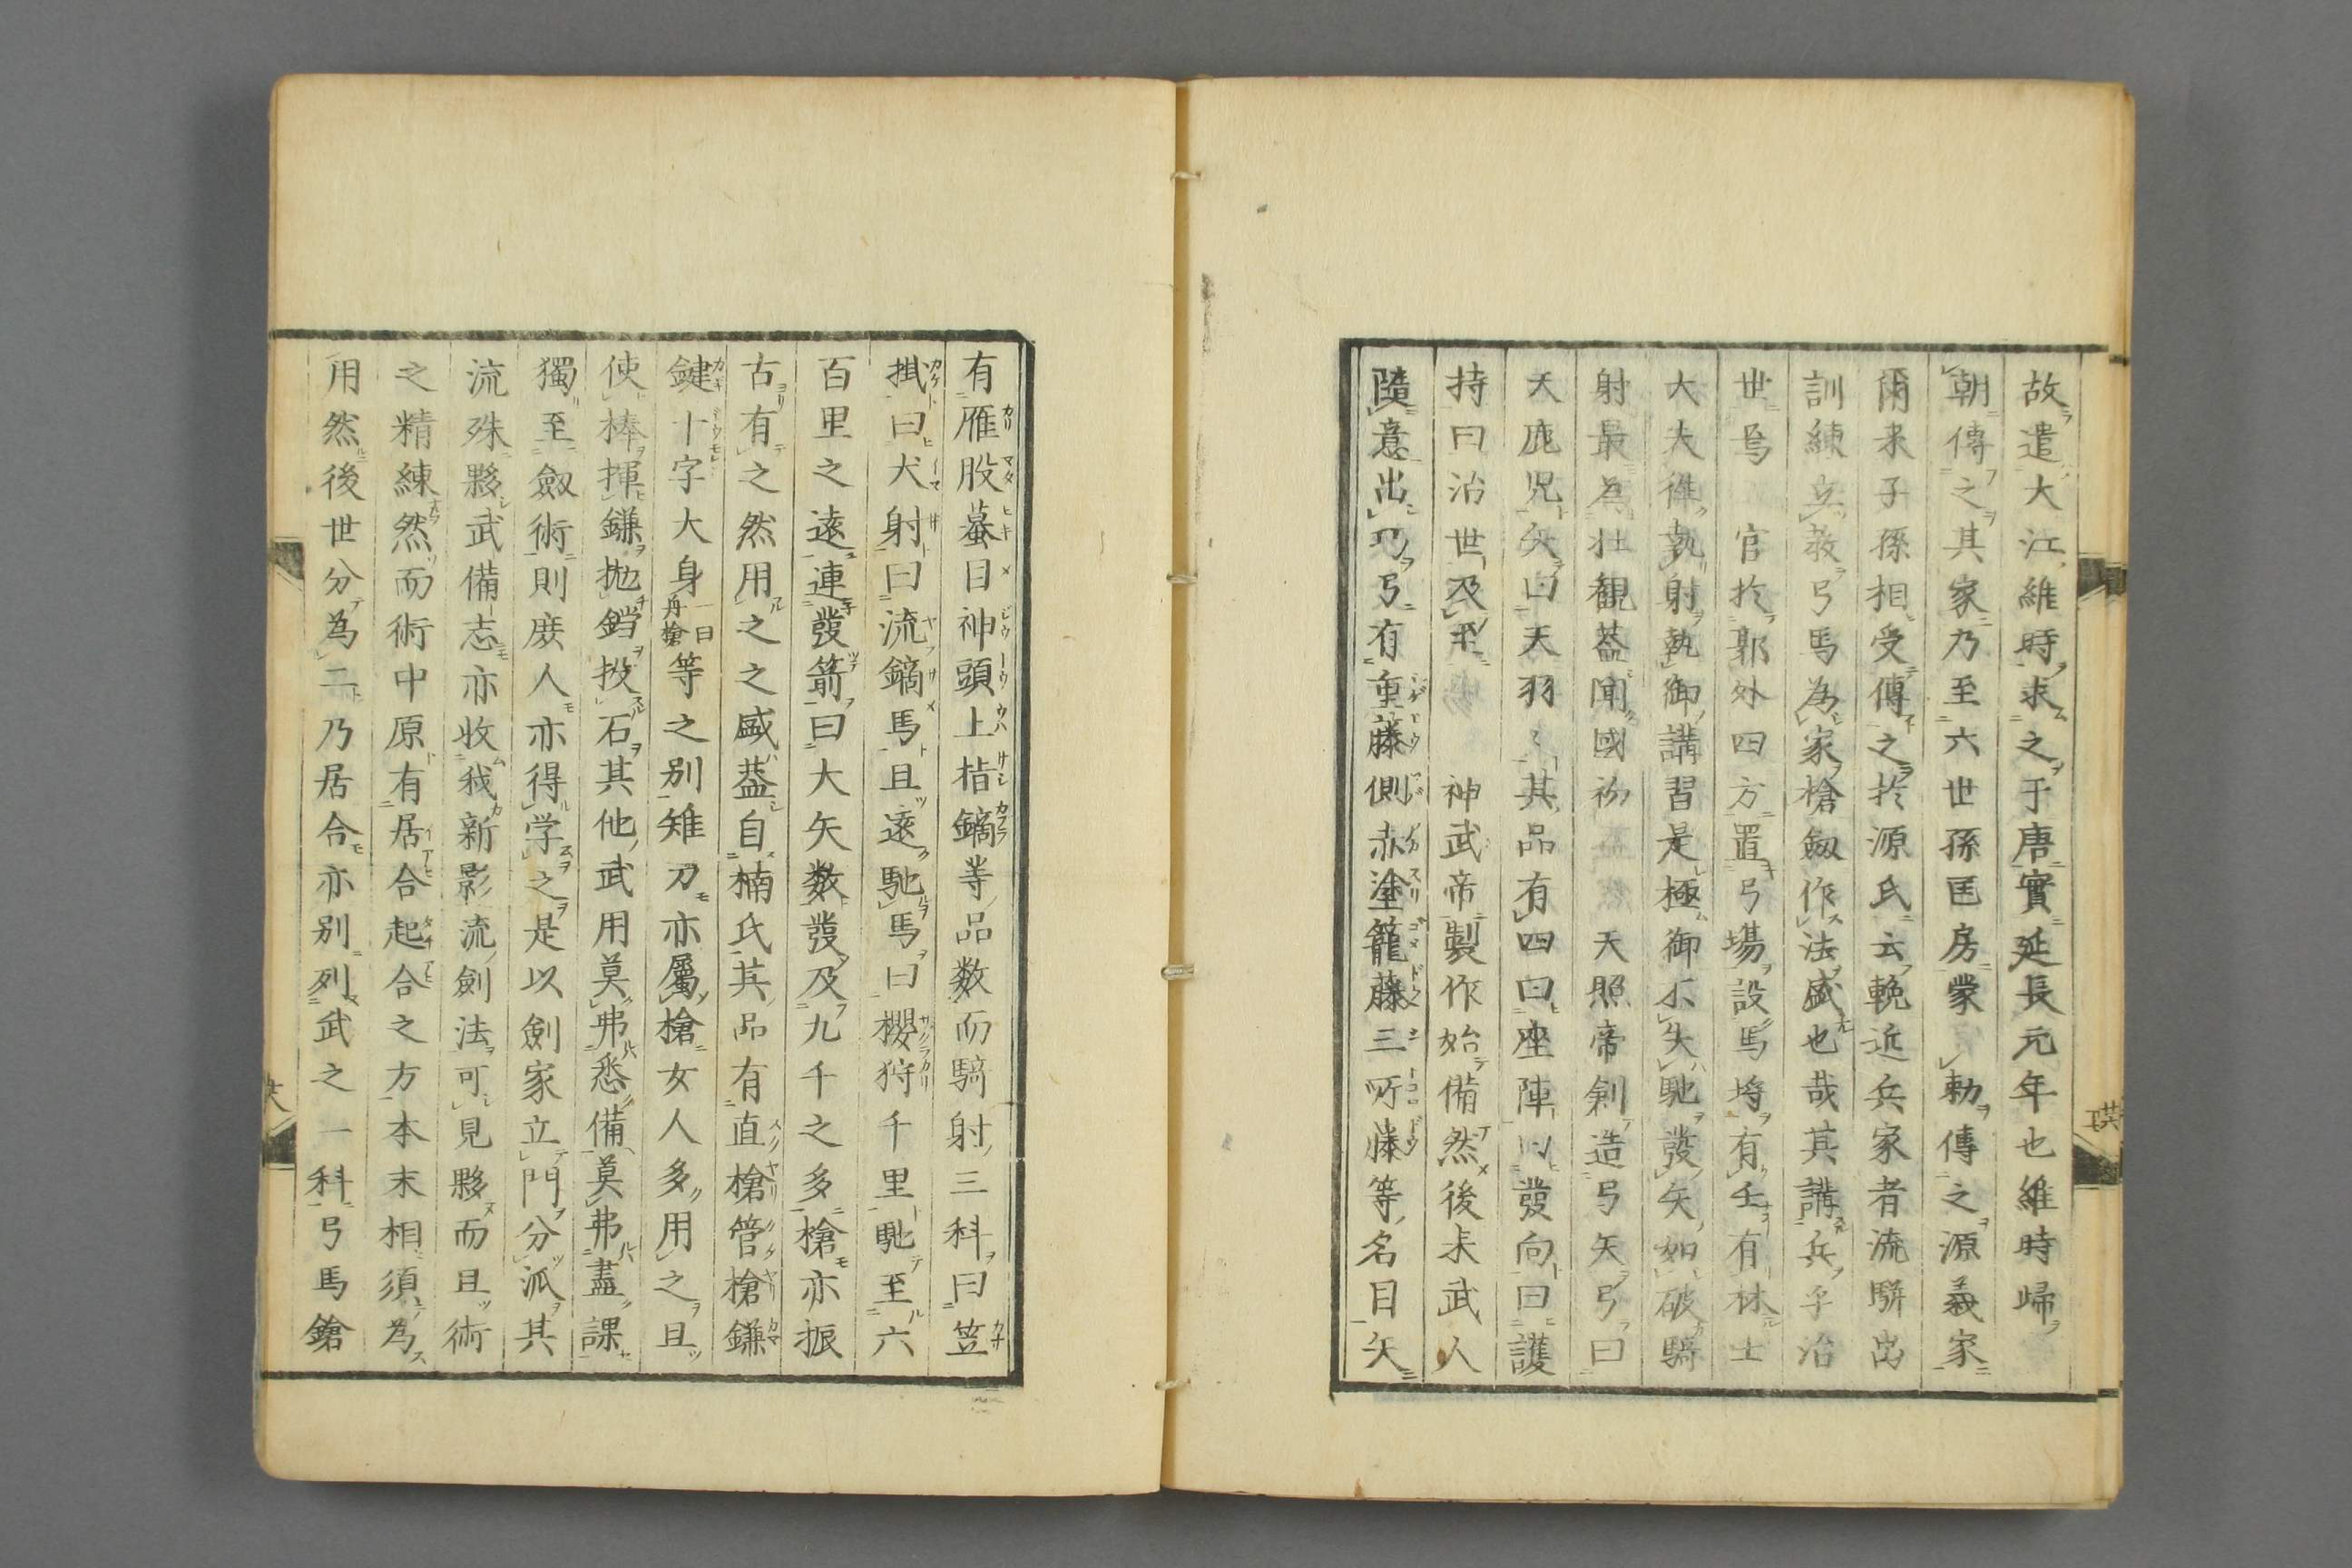 故遣大江維時求之于唐實延長元年也維時歸
朝傳之其家乃至六世孫匡房蒙　勅傳之源義家
爾来子孫相受傳之於源氏云輓近兵家者流駢出
訓練立教弓馬為家槍劔作法盛也哉其講兵乎治
世焉　官於郭外四方置弓場設馬埓有壬有林士
大夫僎執射執御講習是極御不失馳發矢如破騎
射最為壮観蓋聞國初　天照帝創造弓矢弓曰
天鹿児矢曰天羽々其品有四曰座陣曰發向曰護
持曰治世及至　神武帝製作始備然後未武人
随意出巧弓有重藤側赤塗籠藤三所藤等名目矢
有雁股蟇目神頭上栺鏑等品数而騎射三科曰笠
掛曰犬射曰流鏑馬且遠馳馬曰櫻狩千里馳至六
百里之遠連發箭曰大矢数發及九千之多槍亦振
古有之然用之之盛蓋自楠氏其品有直槍管槍鎌
鍵十字大身一曰舟槍等之别雉刀亦屬槍女人多用之且
使棒揮鎌抛鐺投石其他武用莫弗悉備莫弗盡課
獨至劔術則庻人亦得学之是以劍家立門分派其
流殊夥武備志亦收我新影流劍法可見夥而且術
之精練然而術中原有居合起合之方本末相須為
用然後世分為二乃居合亦别列武之一科弓馬鎗